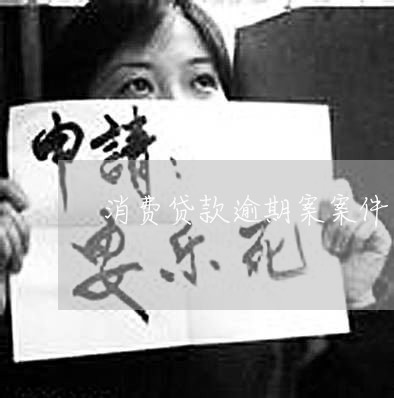 申請：
消费贷款逾期案案件
安乐死